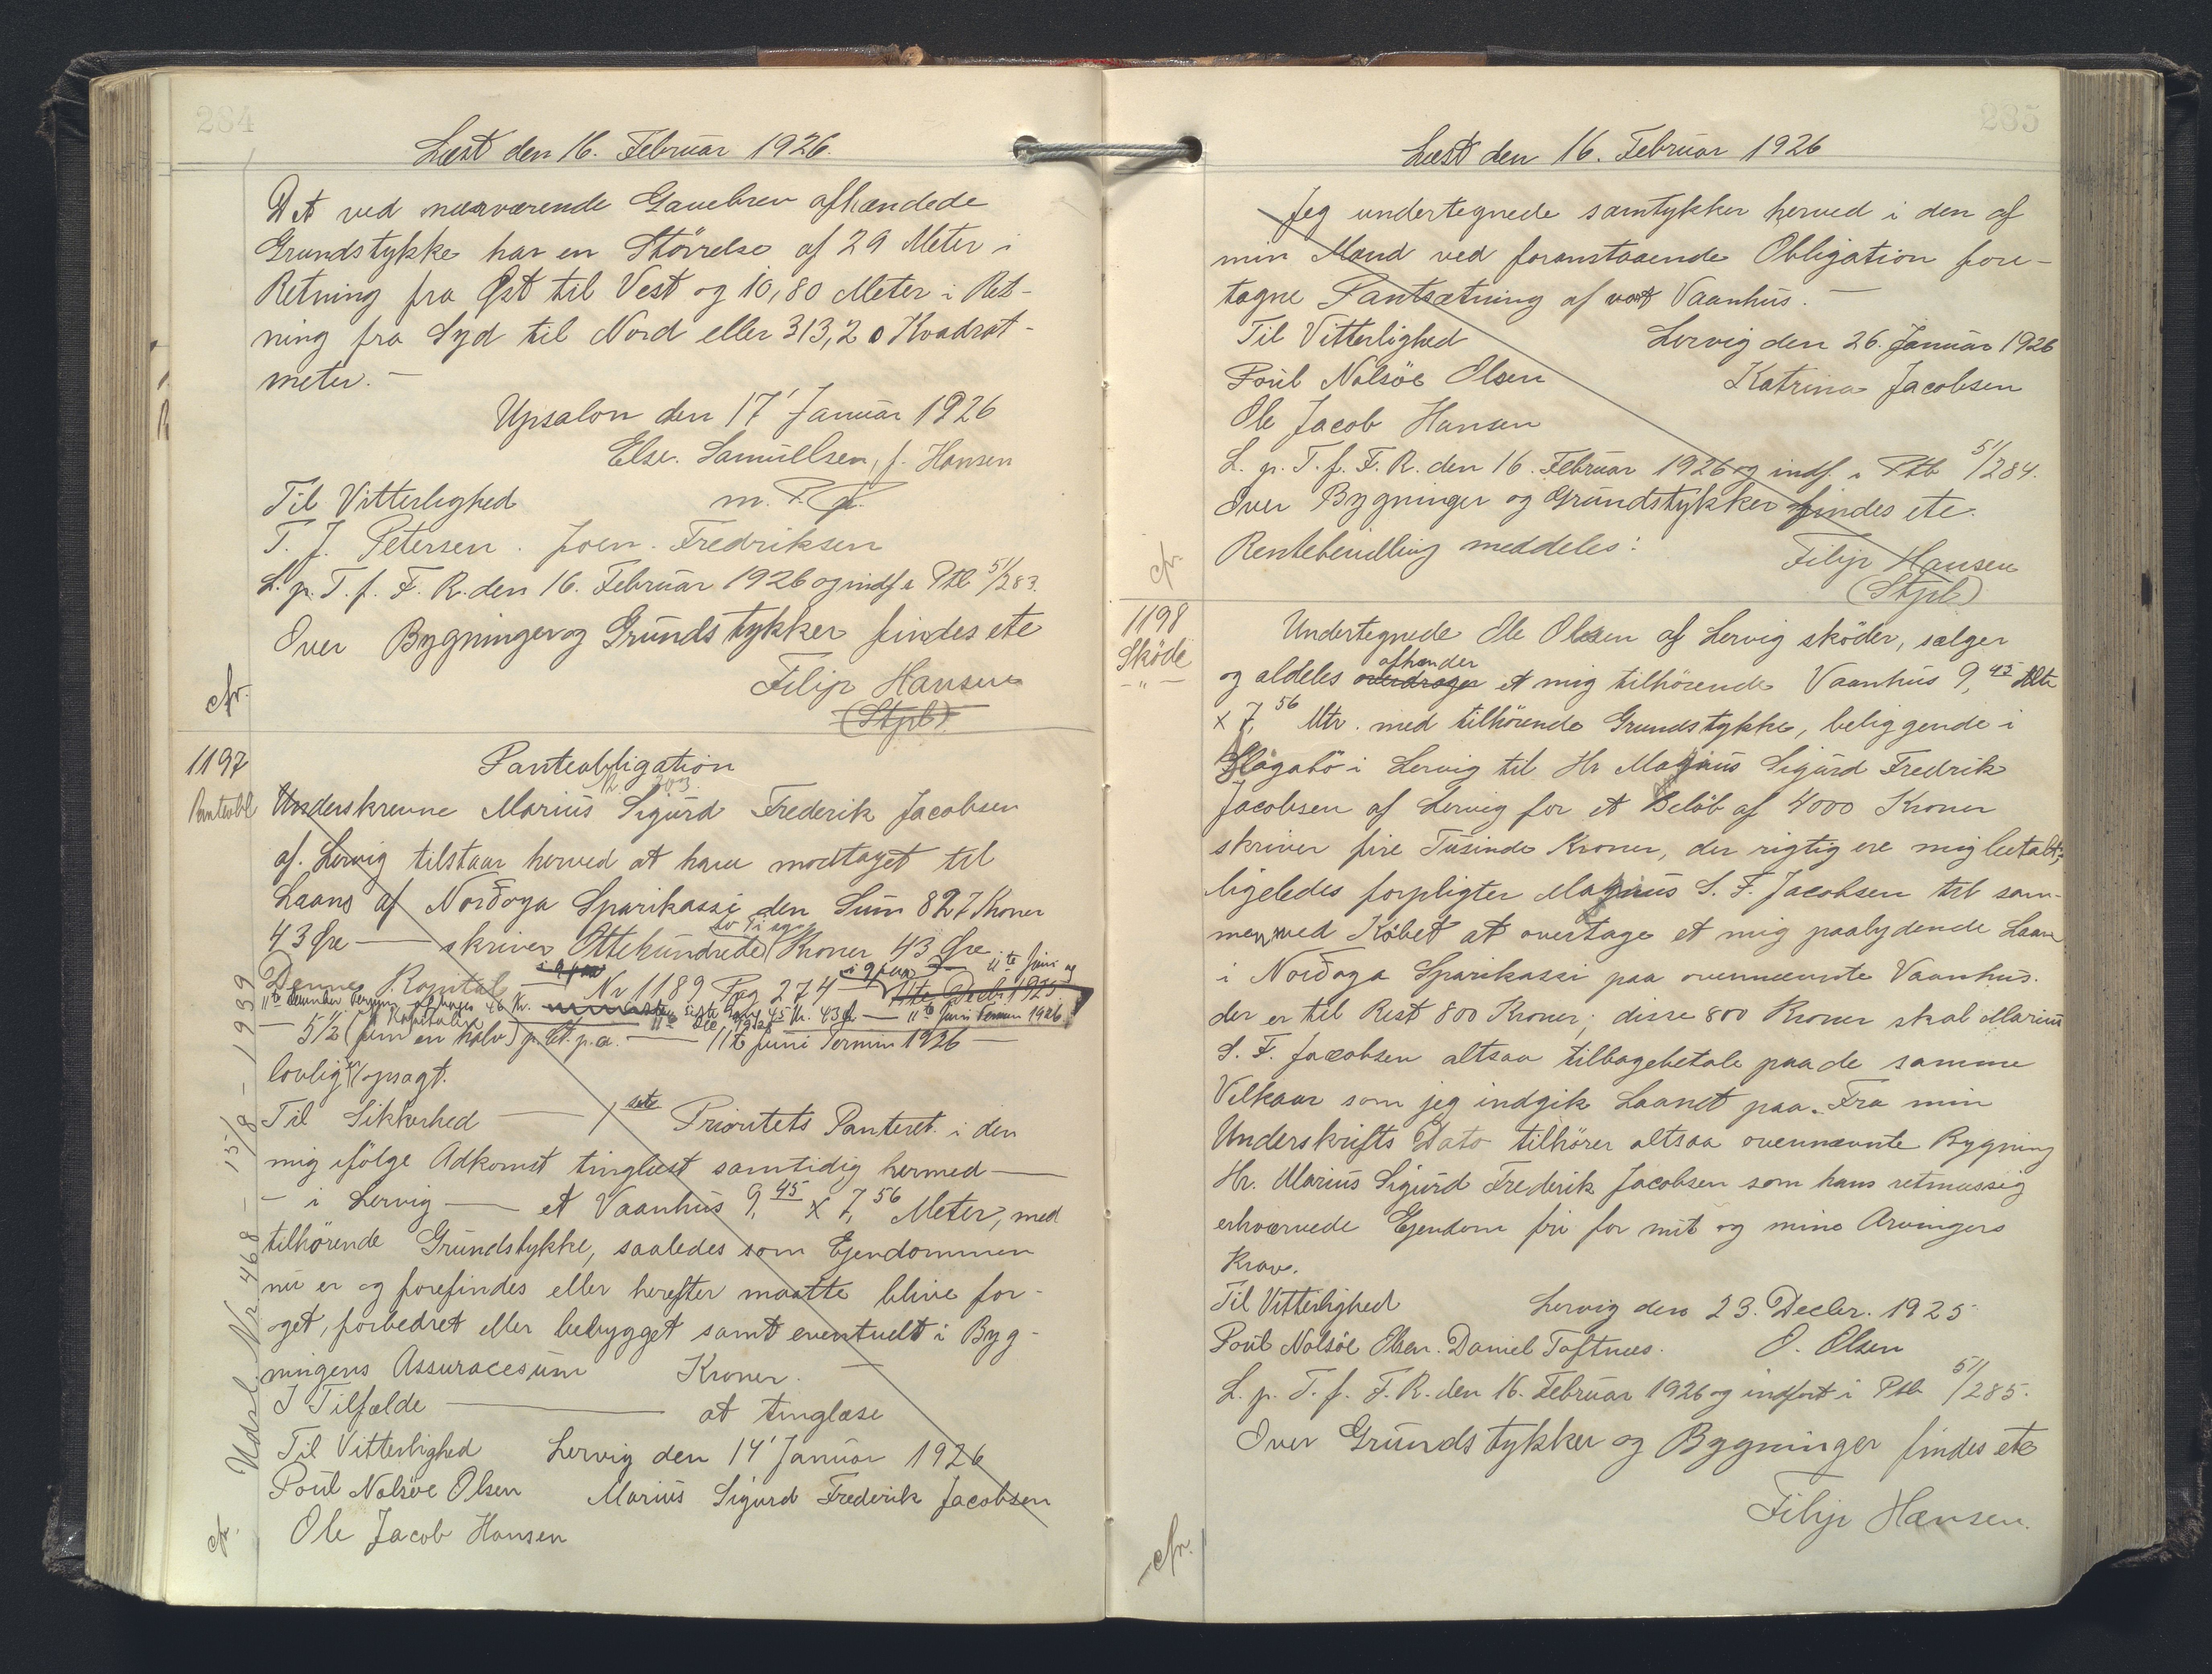 284
Læst den 16. Februar 1926.
Det ved nærværende Gavebrev afhændede
Grundstykke har en Störrelse af 29 Meter i
Retning fra Øst til Vest og 10,80 Meter i Ret-
ning fra Syd til Nord eller 313,20 Kvadrat-
meter. —
Upsalon den 17' Januar 1926
Else. Samuelsen, f. Hansen
Til Vitterlighed m. P.
T. J. Petersen. Joen. Fredriksen
L. p. T. f. F. R. den 16. Februar 1926 og indf i Ptb 51/283.
Over Bygninger og Grundstykker findes etc
Filip Hansen
(Stpl)
cfr.
1197
Panteobl
Panteobligation
Nr. 203.
Underskrevne Marius Sigurd Frederik Jacobsen
af. Lervig tilstaar herved at have modtaget til
Laans af Norðoya Sparikassi den Sum 827 Kroner
43 Øre — skriver Ottehundrede Kroner 43 Øre
Denne Kapital — Nr 1189 Pag 274 — 11te Decbr. 1925
11te Juni og
11te December Termin 46 Kr. sidste Gang 45 Kr. 43 Ør — 11te Juni Termin 1926
— 5 1/2 (fem en halv) p. Ct. p. a. — 11te Juni Termin 1926 —
lovligt opsagt.
Til Sikkerhed — 1ste Prioritets Panteret. i den
mig ifölge Adkomst tinglæst samtidig hermed —
— i Lervig — et Vaanhus 9,45 x 7,56 Meter, med
tilhörende Grundstykke, saaledes som Ejendommen
nu er og forefindes eller herefter maatte blive for-
öget, forbedret eller bebygget samt eventuelt i Byg-
ningens Assuracesum Kroner. —
I Tilfælde — at tinglæse
Til Vitterlighed Lervig den 14' Januar 1926
Poul Nolsöe Olsen Marius Sigurd Frederik Jacobsen
Ole Jacob Hansen
cfr.
Udsl. Nr. 468 — 15/8 — 1939
285
Læst den 16. Februar 1926
Jeg undertegnede samtykker herved i den af
min Mand ved foranstaaende Obligation fore-
tagne Pantsætning af vort Vaanhus. —
Til Vitterlighed Lervig den 26. Januar 1926
Poul Nolsöe Olsen Katrina Jacobsen
Ole Jacob Hansen
L. p. T. f. F. R. den 16. Februar 1926 og indf. i Ptb 51/284.
Over Bygninger og Grundstykker findes etc.
Rentebevilling meddeles: Filip Hansen
(Stpl)
cfr.
1198
Sköde
— " —
Undertegnede Ole Olsen af Lervig sköder, sælger
og aldeles overdrager afhænder et mig tilhörende Vaanhus 9,45 Mtr
x 7,56 Mtr. med tilhörende Grundstykke, beliggende i
Flógabö i Lervig til Hr Marius Sigurd Fredrik
Jacobsen af Lervig for et Belöb af 4000 Kroner
skriver fire Tusinde Kroner, der rigtig ere mig betalt;
ligeledes forpligter Marius S. F. Jacobsen til sam-
men med Köbet at overtage et mig paalydende Laan
i Norðoya Sparikassi paa ovennævnte Vaanhus.
der er til Rest 800 Kroner; disse 800 Kroner skal Marius
S. F. Jacobsen altsaa tilbagebetale paa de samme
Vilkaar som jeg indgik Laanet paa. Fra min
Underskrifts Dato tilhörer altsaa ovennævnte Bygning
Hr. Marius Sigurd Frederik Jacobsen som hans retmæssig
erhvervede Ejendom fri for mit og mine Arvingers
Krav.
Til Vitterlighed Lervig den 23. Decbr. 1925
Poul Nolsöe Olsen. Daniel Toftnes. O. Olsen
L. p. T. f. F. R. den 16. Februar 1926 og indfört i Ptb 51/285.
Over Grundstykker og Bygninger findes etc
Filip Hansen.
cfr.